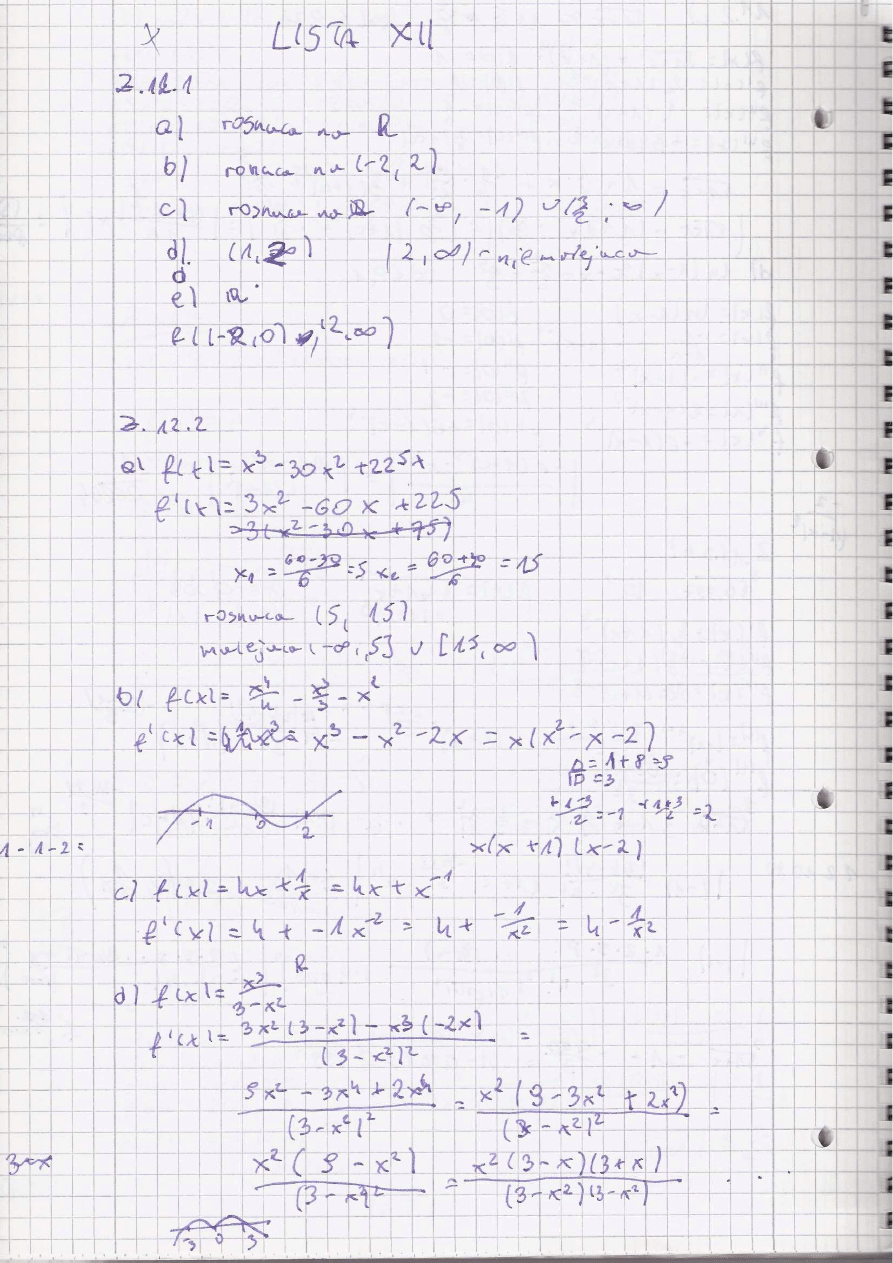 X LISTA XII
Z.12.1
a) rosnaca na R
b) ronaca na (-2, 2)
c) rosnaca na (-∞, -1) ∪ (3/2 ; ∞)
d) (1, 2) (2, ∞) - niemalejaca
e) R
f (-2, 0) , (2, ∞)
Z. 12.2
a) f(x) = x³ - 30x² + 225x
f'(x) = 3x² - 60x + 225
= 3(x² - 30x + 75)
x₁ = (60-30)/6 = 5 x₂ = (60+30)/6 = 15
rosnaca (5, 15)
malejaca (-∞, 5] ∪ [15, ∞)
b) f(x) = x⁴/4 - x³/3 - x²
f'(x) = x³ - x² - 2x = x(x² - x - 2)
Δ = 1 + 8 = 9
√Δ = 3
(+1-3)/2 = -1 (+1+3)/2 = 2
-1 0 2
1 - 1 - 2 = x(x + 1)(x - 2)
c) f(x) = 4x + 1/x = 4x + x⁻¹
f'(x) = 4 + -1x⁻² = 4 + -1/x² = 4 - 1/x²
R
d) f(x) = x³/(3 - x²)
f'(x) = (3x²(3 - x²) - x³(-2x))/(3 - x²)² =
(9x² - 3x⁴ + 2x⁴)/(3 - x²)² = x²(9 - 3x² + 2x²)/(3 - x²)² =
3-x x²(9 - x²)/(3 - x²)² = x²(3 - x)(3 + x)/(3 - x²)(3 - x²) . . .
-3 0 3